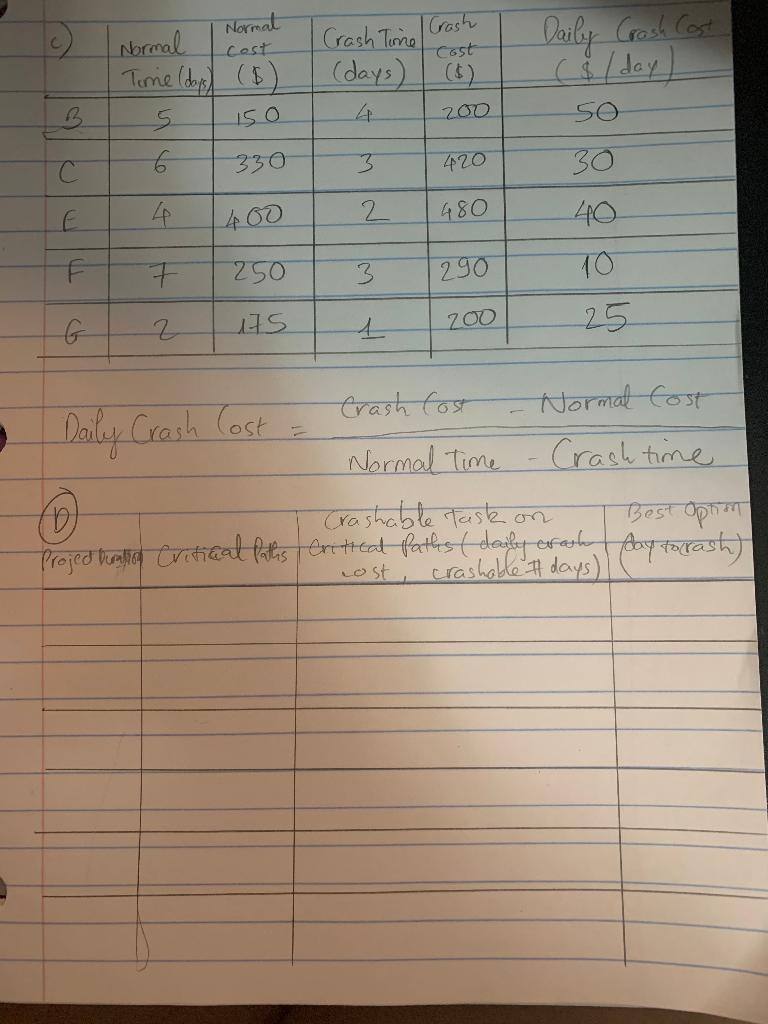 c) Normal Time (days) Normal cost ($) Crash Time (days) Crash Cost ($) Daily Crash Cost ($/day)
B 5 150 4 200 50
C 6 330 3 420 30
E 4 400 2 480 40
F 7 250 3 290 10
G 2 175 1 200 25
Daily Crash Cost = Crash Cost - Normal Cost
Normal Time - Crash time
D
Project Duration Critical Paths Crashable Task on Critical Paths (daily crash cost, crashable # days) Best Option (day to crash)